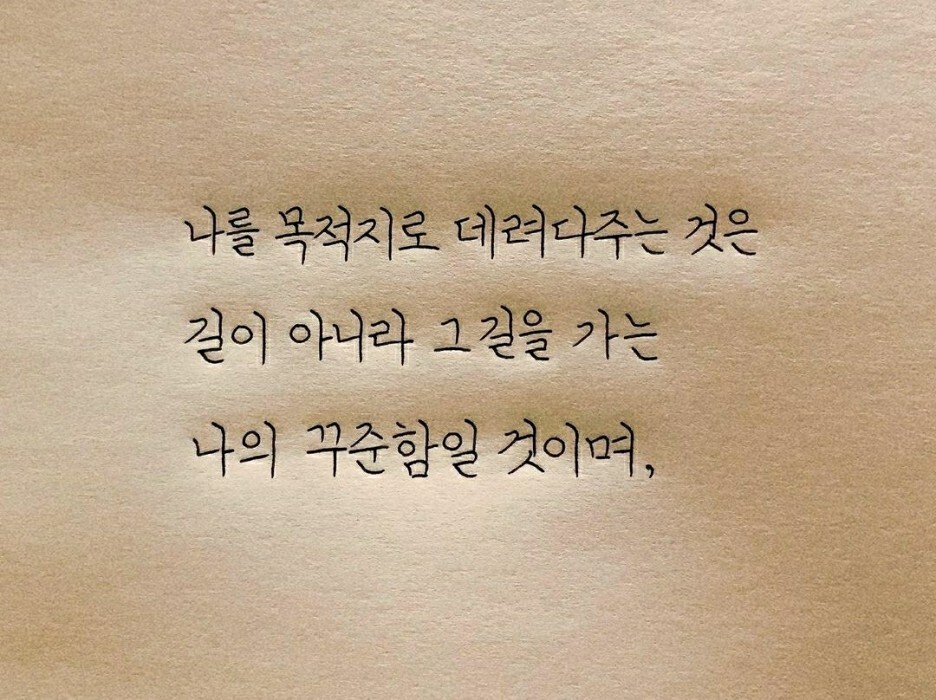 나를 목적지로 데려다주는 것은
길이 아니라 그 길을 가는
나의 꾸준함일 것이며,